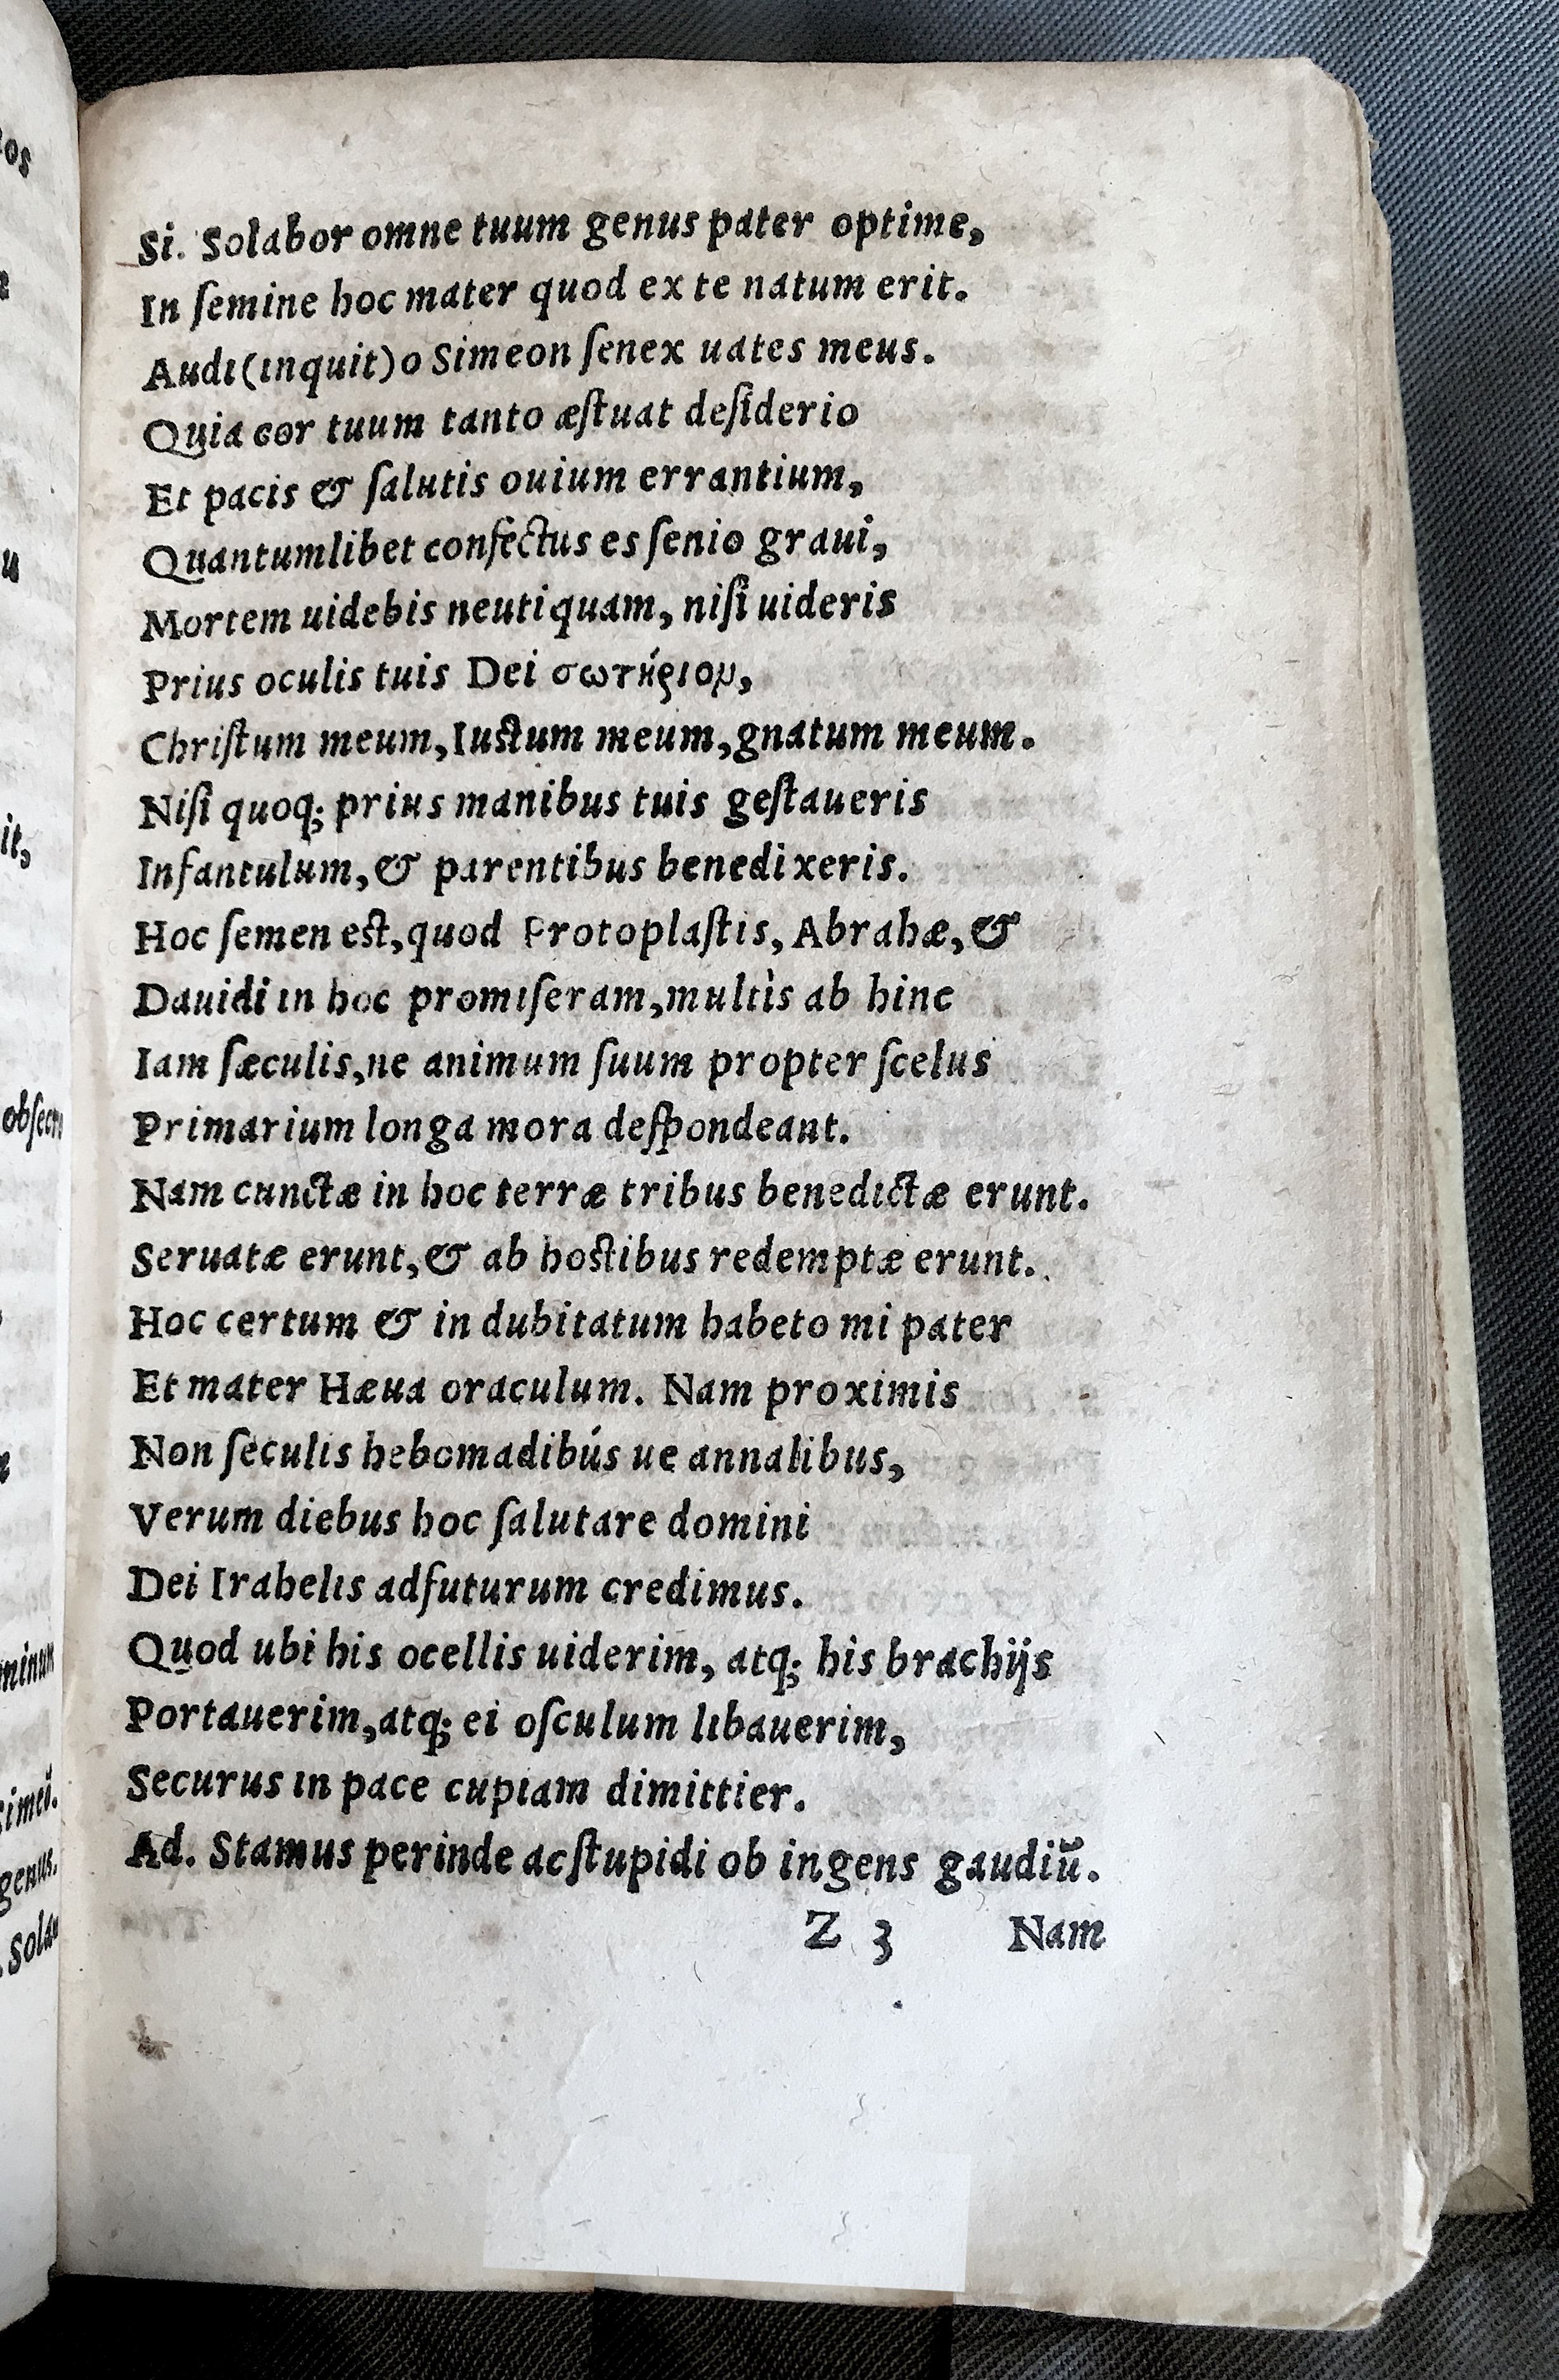 Si. Solabor omne tuum genus pater optime,
In ſemine hoc mater quod ex te natum erit.
Audi(inquit)o Simeon ſenex uates meus.
Quia cor tuum tanto æſtuat deſiderio
Et pacis & ſalutis ouium errantium,
Quantumlibet confectus es ſenio graui,
Mortem uidebis neutiquam, niſi uideris
Prius oculis tuis Dei σωτήριον,
Chriſtum meum,Iustum meum,gnatum meum.
Niſi quoq; prius manibus tuis geſtaueris
Infantulum,& parentibus benedixeris.
Hoc ſemen est,quod Protoplaſtis, Abrahæ,&
Dauidi in hoc promiſeram,multìs ab hinc
Iam ſæculis,ne animum ſuum propter ſcelus
Primarium longa mora deſpondeant.
Nam cunctæ in hoc terræ tribus benedictæ erunt.
Seruatæ erunt,& ab hostibus redemptæ erunt.
Hoc certum & in dubitatum habeto mi pater
Et mater Hæua oraculum. Nam proximis
Non ſeculis hebomadibús ue annalibus,
Verum diebus hoc ſalutare domini
Dei Irahelis adfuturum credimus.
Quod ubi his ocellis uiderim, atq; his brachijs
Portauerim,atq; ei oſculum libauerim,
Securus in pace cupiam dimittier.
Ad. Stamus perinde ac ſtupidi ob ingens gaudiũ.
Z 3 Nam